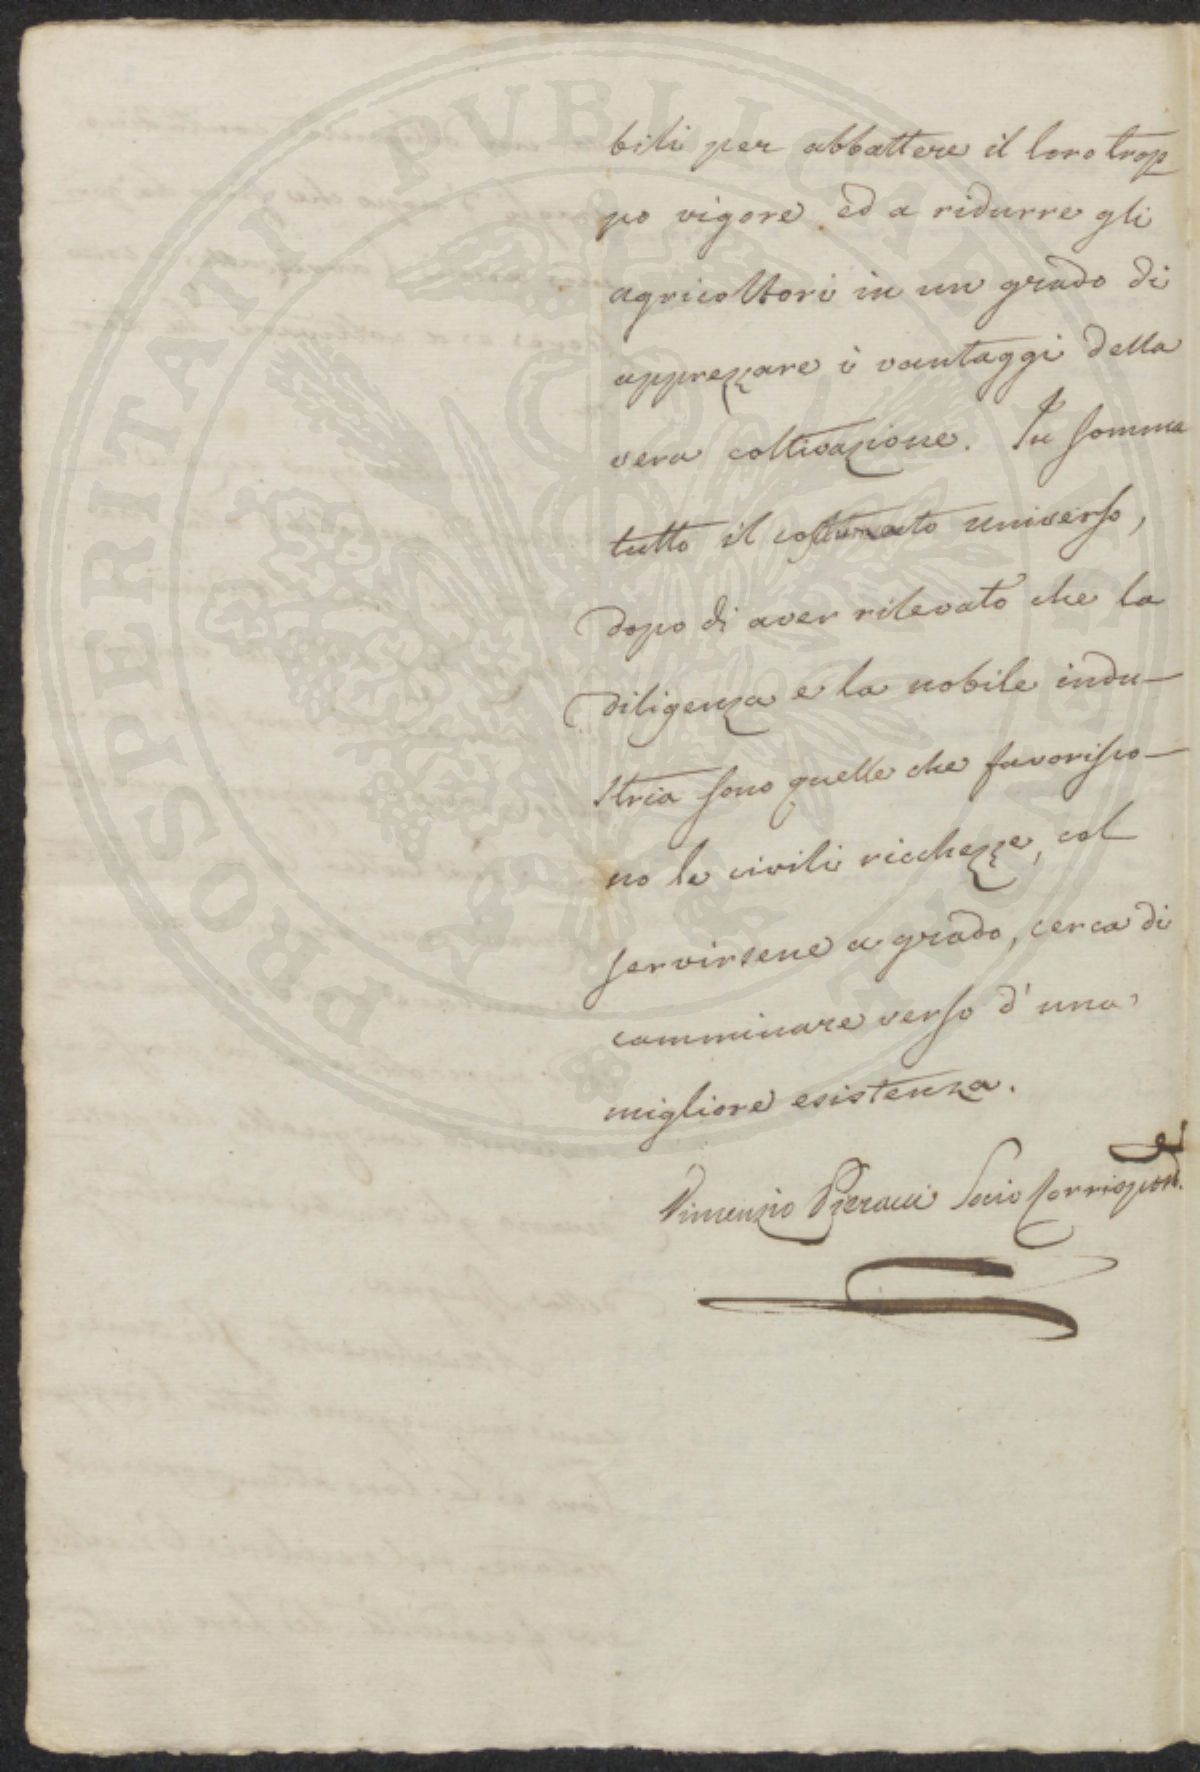 bili per abbattere il loro trop
po vigore ed a ridurre gli
agricoltori in un grado di
apprezzare i vantaggi della
vera coltivazione. In somma
tutto il costumato universo,
dopo di aver rilevato che la
diligenza e la nobile indu-
stria sono quelle che favorisco-
no le civili ricchezze, col
servirsene a grado, cerca di
camminare verso d' una
migliore esistenza.
Vincenzio Pieracci Socio Corrispond.
PROSPERITATI PUBLICAE